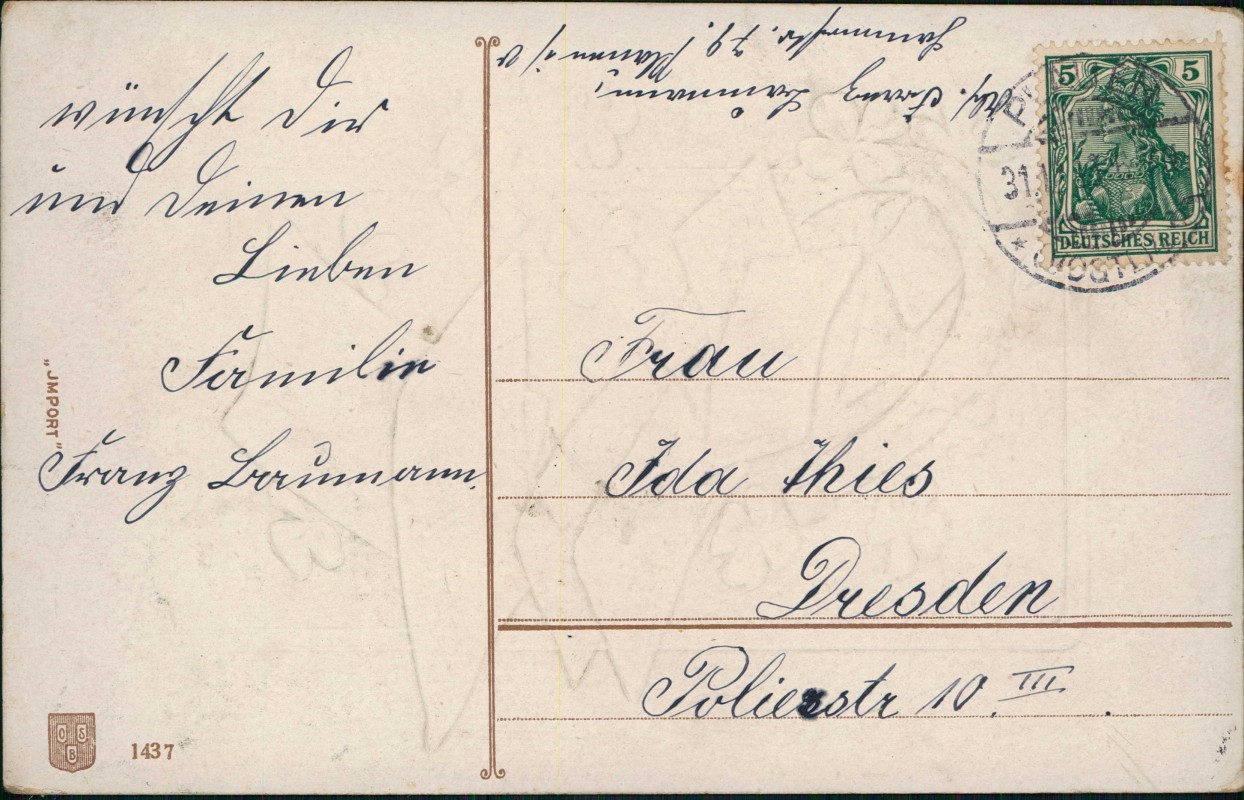 wünscht Dir
und Deinen
Lieben
Familie
Franz Baumann.
„JMPORT“
O S B
1437
Abs. Franz Baumann,
Plauen i/V
str. 79.
5 5
DEUTSCHES REICH
31.
Frau
Ida Thies
Dresden
Polierstr 10. III.